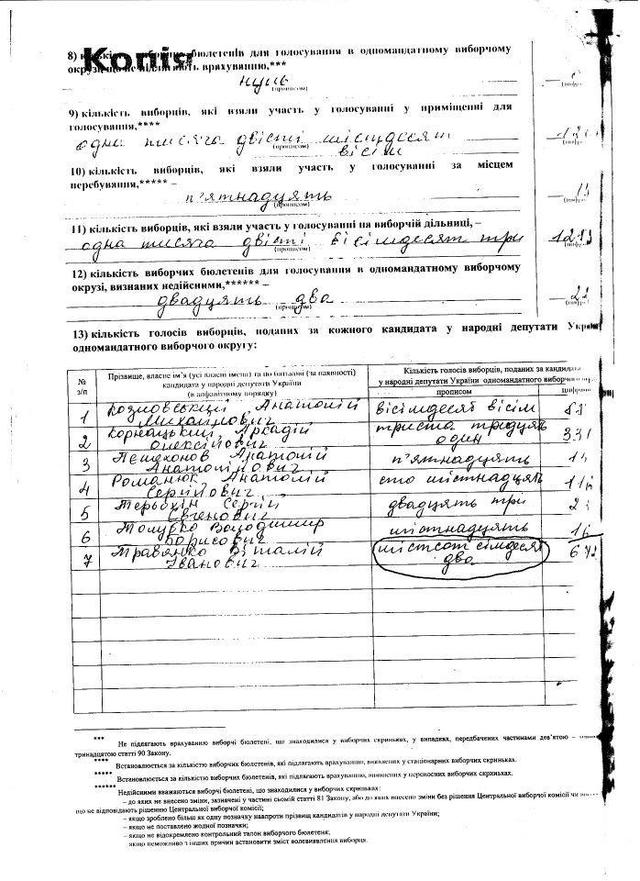 Копія
8) кількість виборчих бюлетенів для голосування в одномандатному виборчому
окрузі, що не підлягають врахуванню,***
нуль
(прописом)
9) кількість виборців, які взяли участь у голосуванні у приміщенні для
голосування,****
одна тисяча двісті шістдесят
вісім
(прописом)
10) кількість виборців, які взяли участь у голосуванні за місцем
перебування,***** –
п'ятнадцять
(прописом)
11) кількість виборців, які взяли участь у голосуванні на виборчій дільниці, –
одна тисяча двісті вісімдесят три 1283
(прописом)
12) кількість виборчих бюлетенів для голосування в одномандатному виборчому
окрузі, визнаних недійсними,****** –
двадцять два 22
(прописом)
13) кількість голосів виборців, поданих за кожного кандидата у народні депутати
одномандатного виборчого округу:
№ з/п
Прізвище, власне ім'я (усі власні імена) та по батькові (за наявності)
кандидата у народні депутати України
(в алфавітному порядку)
Кількість голосів виборців, поданих за кандидата
у народні депутати України одномандатного
прописом
1 Козловський Анатолій Михайлович вісімдесят вісім 88
2 Корнацький Аркадій Олексійович триста тридцять один 331
3 Анатолій Анатолійович п'ятнадцять 15
4 Романюк Анатолій Сергійович сто шістнадцять 116
5 Сергій Євгенович двадцять три 23
6 Володимир Борисович шістнадцять 16
7 Травянко Віталій Іванович шістсот сімдесят два 672
*** Не підлягають врахуванню виборчі бюлетені, що знаходилися у виборчих скриньках, у випадках, передбачених частинами дев'ятою –
тринадцятою статті 90 Закону.
**** Встановлюється за кількістю виборчих бюлетенів, які підлягають врахуванню, виявлених у стаціонарних виборчих скриньках.
***** Встановлюється за кількістю виборчих бюлетенів, які підлягають врахуванню, виявлених у переносних виборчих скриньках.
****** Недійсними вважаються виборчі бюлетені, що знаходилися у виборчих скриньках:
– до яких не внесено зміни, зазначені у частині сьомій статті 81 Закону, або до яких внесено зміни без рішення Центральної виборчої комісії чи
що не відповідають рішенню Центральної виборчої комісії;
– якщо зроблено більш як одну позначку навпроти прізвищ кандидатів у народні депутати України;
– якщо не поставлено жодної позначки;
– якщо не відокремлено контрольний талон виборчого бюлетеня;
якщо неможливо з інших причин встановити зміст волевиявлення виборця.